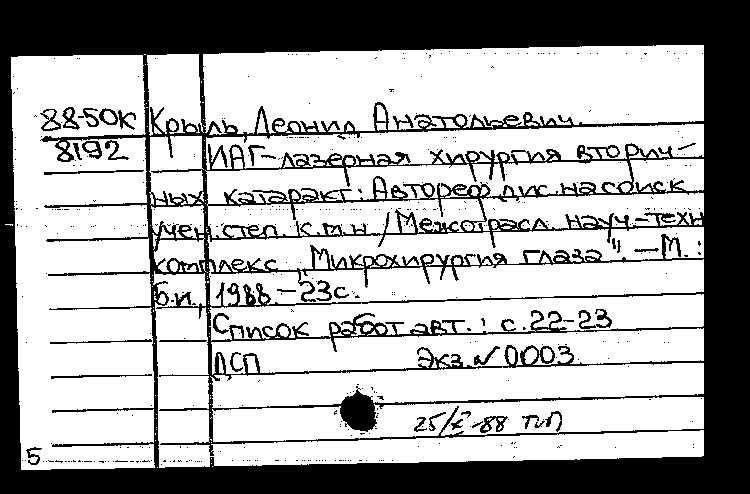 88-50к Крыль, Леонид Анатольевич.
8192 ИАГ-лазерная хирургия вторич-
ных катаракт: Автореф. дис. на соиск.
учен. степ. к.м.н. / Межотрасл. науч.-техн.
комплекс „Микрохирургия глаза". — М. :
Б.и., 1988. - 23с.
Список работ авт. : с. 22-23
ДСП Экз. № 0003.
25/ -88
5